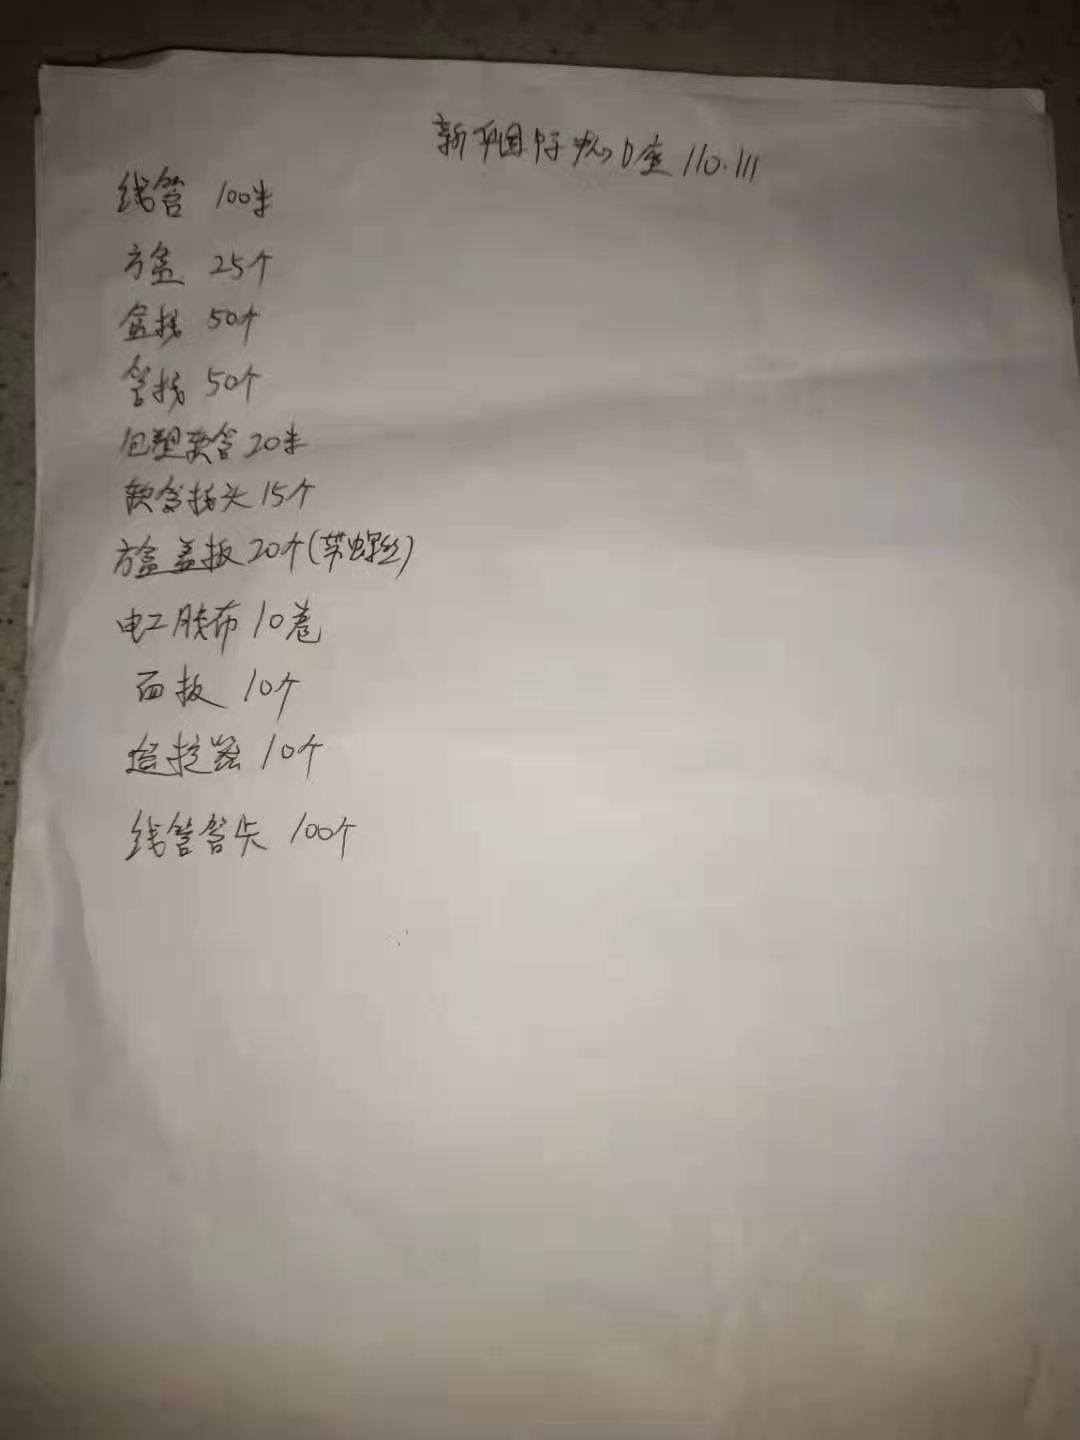 新 国 D座 110.111
线管 100米
方盒 25个
盒接 50个
管接 50个
包塑软管 20米
软管接头 15个
方盒盖板 20个(带螺丝)
电工胶布 10卷
面板 10个
遥控器 10个
线管管卡 100个